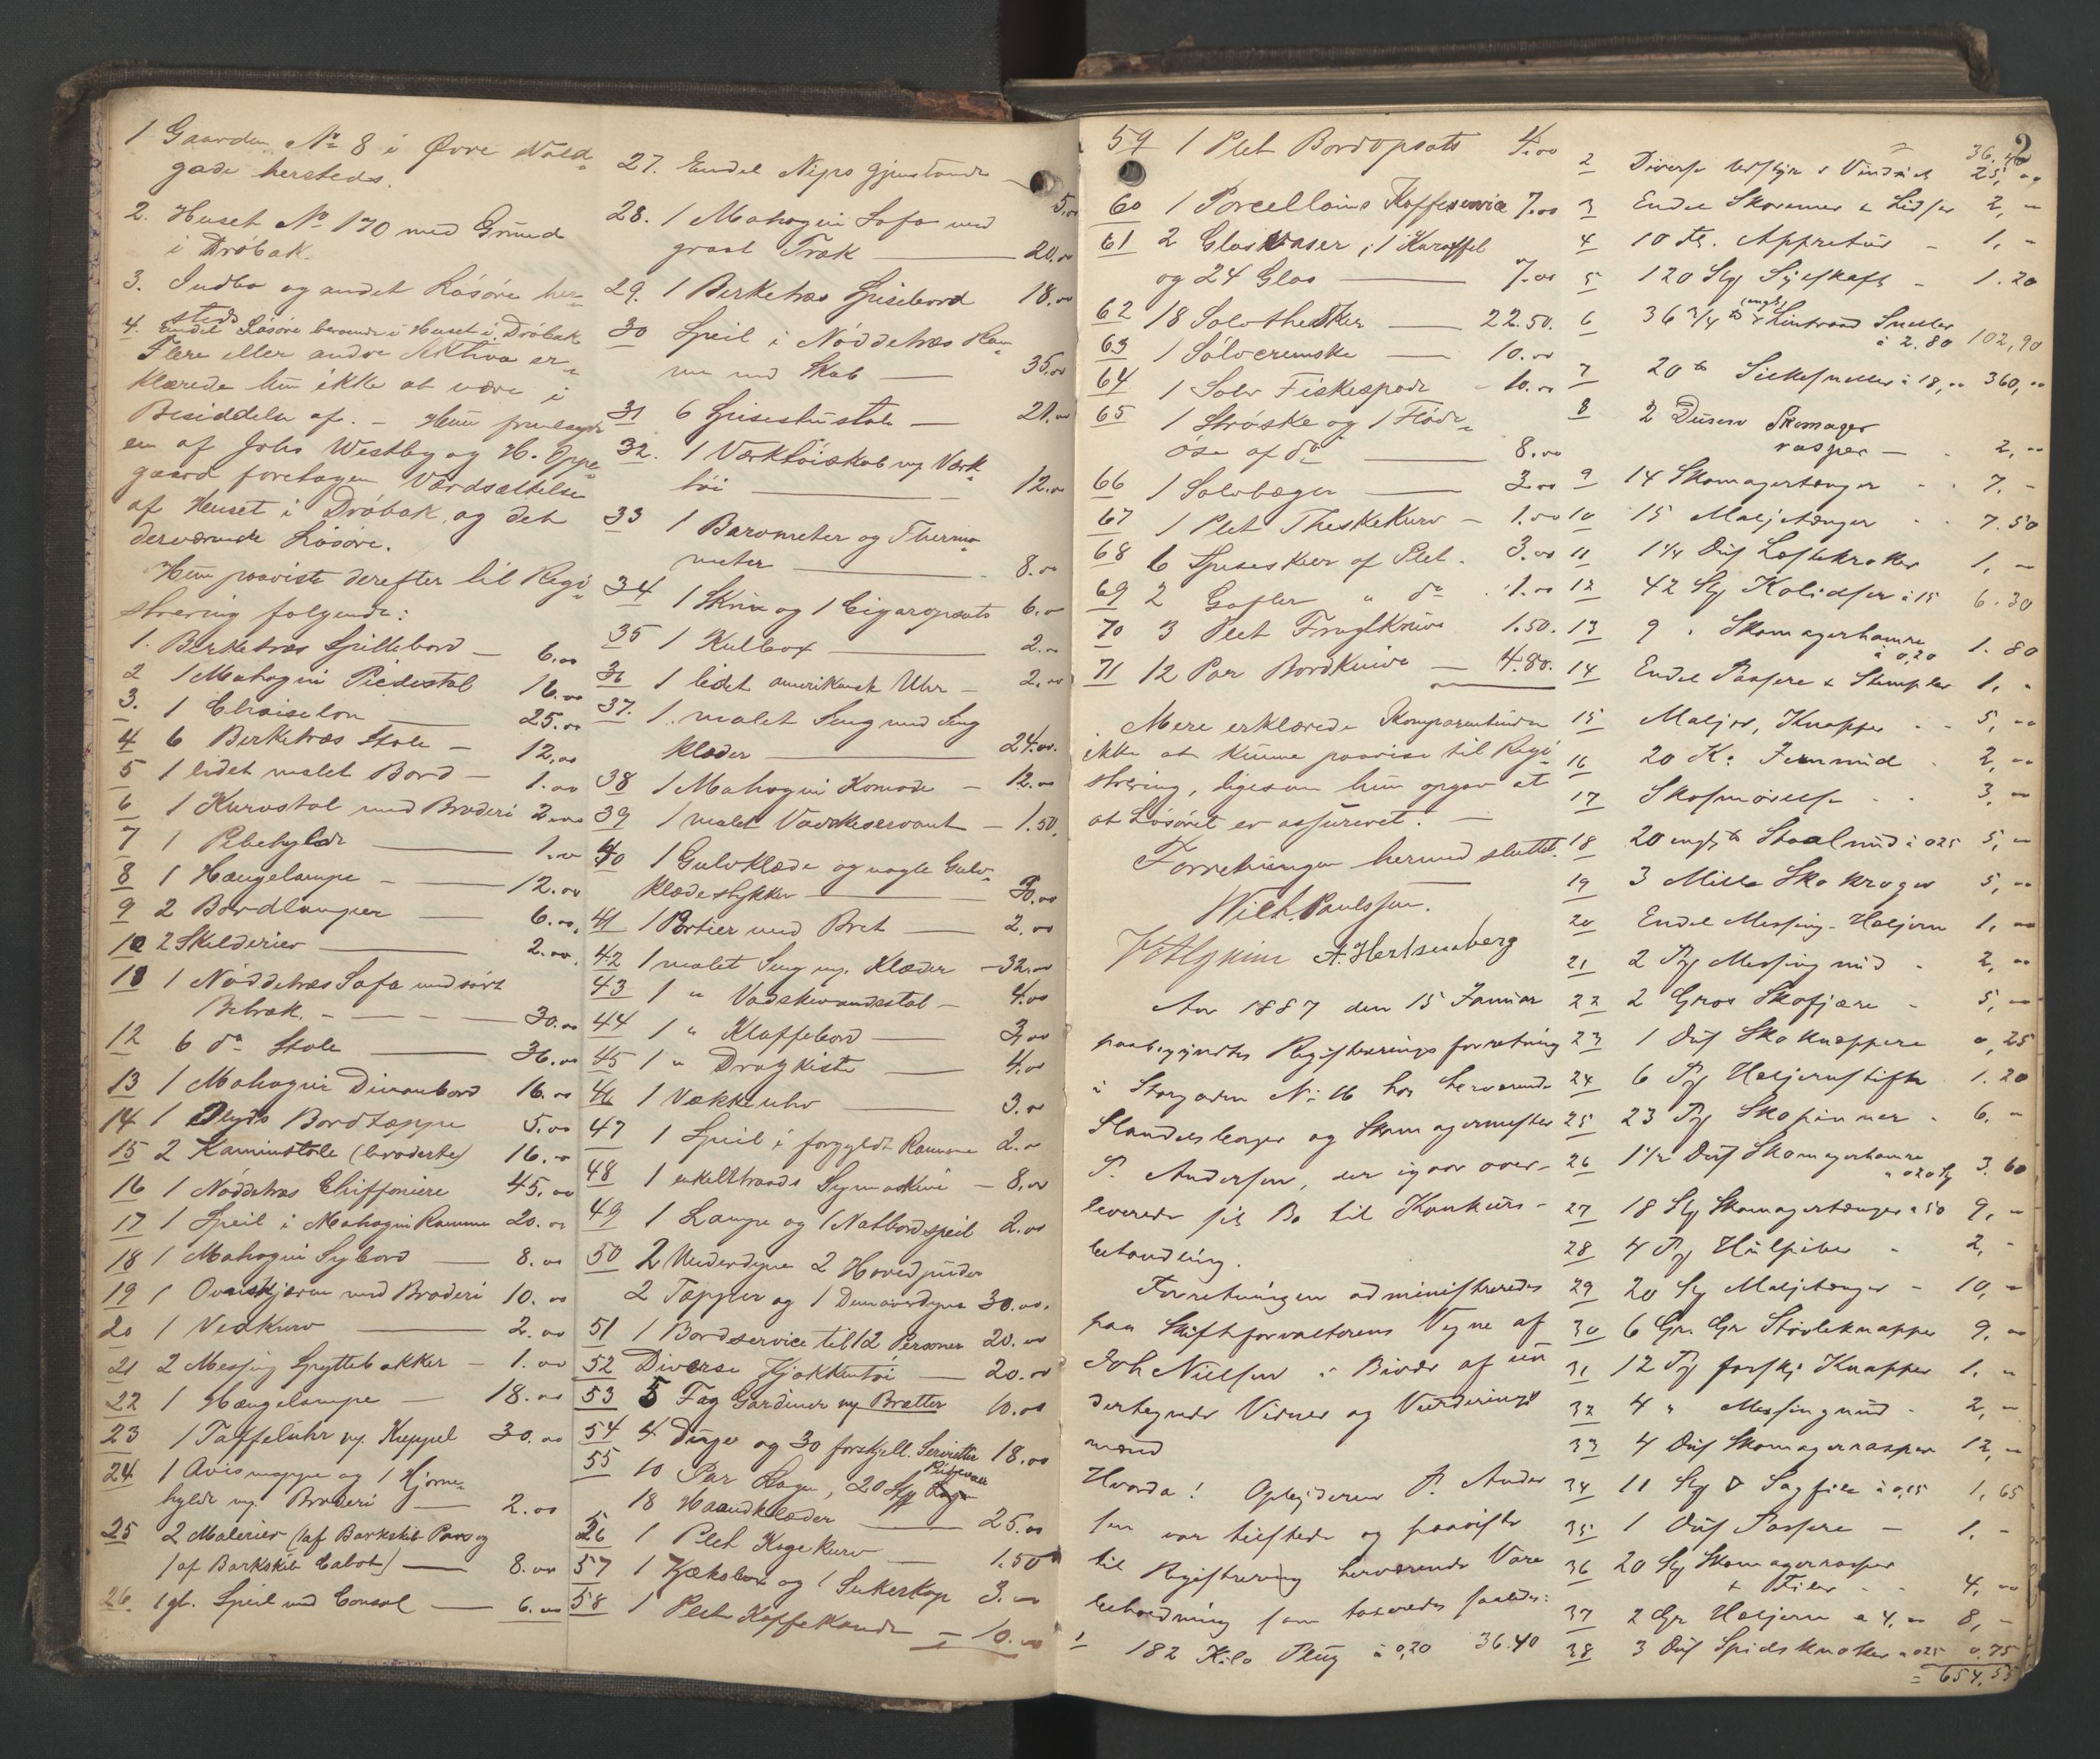 1 Gaarden No 8 i Øvre Vold-
gade hersteds.
2. Huset No 170 med Grund
i Drøbak.
3. Indbo og andet Løsøre her-
steds
4. Endel Løsøre beroende i Huset i Drøbak
Flere eller andre Aktiva er-
klærede hun ikke at være i
Besiddelse af. - Hun fremlagde
en af Johs Westby og H. Oppe-
gaard foretagen Værdsættelse
af Huset i Drøbak, og det
derværende Løsøre.
Hun paaviste derefter til Regi-
strering følgende:
1. Birketræs Spillebord — 6.00
2 1 Mahogni Piedestal 16.00
3. 1 Chaiselon — 25.00
4 6 Birketræs Stole — 12.00
5 1 lidet malet Bord — 1.00
6 1 Kurvstol med Broderi 2.00
7 1 Pibehylde — 1.00
8 1 Hængelampe — 12.00
9 2 Bordlamper — 6.00
10 2 Skilderier — 2.00
11 1 Nøddetræs Sofa med sort
Betræk. — 30.00
12 6 do Stole — 36.00
13 1 Mahogni Divanbord 16.00
14 1 Plyds Bordtæppe 5.00
15 2 Kaminstole (broderte) 16.00
16 1 Nøddetræs Chiffoniere 45.00
17 1 Speil i Mahogni Ramme 20.00
18 1 Mahogni Sybord — 8.00
19 1 Ovnskjærm med Broderi 10.00
20 1 Vedkurv — 2.00
21 2 Messing Spyttebakker — 1.00
22 1 Hængelampe — 18.00
23 1 Taffeluhr og Kuppel 30.00
24 1 Avismappe og 1 Hjørne-
hylde og Broderi — 2.00
25 2 Malerier (1 af Barkskib Pons og
1 af Barkskib Cabot) — 8.00
26. 1 gl. Speil med Consol — 6.00
27. Endel Nips gjenstande — 5.00
28. 1 Mahogni Sofa med
graat Træk — 20.00
29. 1 Birketræs Spisebord 18.00
30 Speil i Nøddetræs Ram-
me med Skab — 35.00
31 6 Spisestuestole — 21.00
32. 1 Værktøiskab og Værk-
tøi — 12.00
33 1 Barometer og Thermo-
meter — 8.00
34 1 Skrin og 1 Cigaropsats 6.00
35 1 Kulbox — 2.00
36 1 lidet amerikansk Uhr — 2.00
37. 1 malet Seng med Seng
klæder — 24.00
38 1 Mahogni Komode — 12.00
39 1 malet Vaskeservant — 1.50
40 1 Gulvklæde og nogle Gulv-
klædestykker — 30.00
41 1 Portier med Bret — 2.00
42 1 malet Seng og Klæder — 32.00
43 1 " Vadskevandsstol — 4.00
44 1 " Klaffebord — 3.00
45 1 " Dragkiste — 4.00
46 1 Vækkeuhr — 3.00
47 1 Speil i forgyldt Ramme 2.00
48 1 enkelttraads Symaskine — 8.00
49 1 Lampe og 1 Natbordspeil 2.00
50 2 Underdyner 2 Hovedpuder
2 Tæpper og 1 Dunoverdyne 30.00
51 1 Bordservice til 12 Personer 20.00
52 Diverse Kjøkkentøi — 20.00
53 5 Fag Gardiner og Brætter 10.00
54 4 Duge og 30 forskjell. Servietter 18.00
55 10 Par Lagen, 20 Stk Pudevaar
18 Haandklæder — 25.00
56 1 Plet Kagekurv — 1.50
57 1 Kjæksbox og 1 Sukerkop 3.00
58 1 Plet Kaffekande — 10.00
59 1 Plet Bordopsats 4.00
60 1 Porcellains Kaffeservice 7.00
61 2 Glasvaser, 1 Karaffel
og 24 Glas — 7.00
62 18 Sølvtheskeer — 22.50.
63 1 Sølvcremske — 10.00
64 1 Sølv Fiskespade — 10.00
65 1 Strøske og 1 Fløde-
øse af do — 8.00
66 1 Sølvbæger — 3.00
67 1 Plet Theskekurv — 1.00
68 6 Spiseskeer af Plet. 3.00
69 2 Gafler " do . 1.00
70 3 Plet Frugtknive 1.50.
71 12 Par Bordknive — 4.80.
Mere erklærede Komparentinden
ikke at kunne paavise til Regi-
strering, ligesom hun opgav at
at Løsøret er assureret. —
Forretningen hermed sluttet.
Wilh. Paulssen.
A. Hertzenberg
Aar 1887 den 15 Januar
paabegyndtes Registreringsforretning
i Storgaden No 16 hos herværende
Handelsborger og Skomagermester
P. Andersen, der igaar over-
leverede sit Bo til Konkurs-
behandling.
Forretningen administreredes
paa Skifteforvalterens Vegne af
Joh Nielsen i Bivær af un
dertegnede Vidner og Vurderings
mænd
Hvorda! Opbyderen P. Ander
sen var tilstede og paaviste
til Registrering herværende Vare
beholdning som taxeredes saaledes:
1 182 Kilo Pløg à 0,20 36.40
36.40
2 Diverse i Vinduet 25,00
3 Endel Skoremer & Lidser 2, —
4 10 Fl. Appretur — 1. —
5 120 Stk Sylskaft — 1.20
6 36 3/4 ℔ (engl) Lintraad Sneller
à 2.80 102,90
7 20 ℔ Silkesneller à 18,00 360,00
8 2 Dusin Skomager
rasper — 2,00
9 14 Skomagertænger 7. —
10 15 Maljetænger 7.50
11 1 1/4 Dus Løftekroker 1, —
12 42 Stk Kolidser à 15 6.30
13 9 " Skomagerhamre
à 0,20 1.80
14 Endel Passere & Stempler 1, —
15 Maljer, Knapper 5,00
16 20 Ko Jernnud 2,00
17 Skosmørelse 3,00
18 20 engl ℔ Staalnud à 025 5, —
19 3 Mille Sko kroger 5,00
20 Endel Messing-Hæljern 1,00
21 2 Pk Messing nud 2,00
22 2 Gros Skofjære 5,00
23 1 Dus Skoknæppere 0,25
24 6 Pk Hæljernstifte 1.20
25 23 Pk Skopinner 6. —
26 1 1/2 Dus Skomagerhamre
à 020 Stk 3.60
27 18 Stk Skomagertænger à 50 9, —
28 4 Pk Hulpiber 2, —
29 20 Stk Maljetænger 10, —
30 6 Gr. Gr Støvleknapper 9,00
31 12 Pk forskj Knapper 1. —
32 4 " Messingnud 2, —
33 4 Dus Skomagerrasper 12, —
34 11 Stk Sagfile à 0,15 1,65
35 1 Dus Passere — 1. —
36 20 Stk Skomagerrasper
& Filer 4,00
37 2 Gr Hæljern à 4,00 8, —
38 3 Dus Spidsknoker à 025 0.75
= 654,55
2